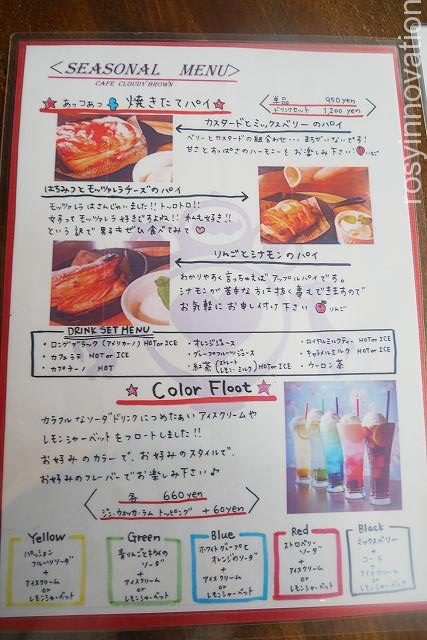 SEASONAL MENU
CAFE CLOUDY BROWN
あっつあつ 焼きたてパイ
単品 950yen
ドリンクセット 1,200yen
カスタードとミックスベリーのパイ
ベリーとカスタードの組合わせ・・・まちがいないです!
甘さとすっぱさのハーモニーをお楽しみ下さい
はちみつとモッツァレラチーズのパイ
モッツァレラはさんじゃいました!!トーロトロ!!
女子ってモッツァレラ好きですよね!!私も好き!!
という訳で男子もぜひ食べてみて♡
りんごとシナモンのパイ
わかりやすく言っちゃえばアップルパイです。
シナモンが苦手な方は抜く事もできますので
お気軽にお申し付け下さい
りんご
DRINK SET MENU
・ロングブラック(アメリカーノ) HOT or ICE
・カフェラテ HOT or ICE
・カプチーノ HOT
・オレンジジュース
・グレープフルーツジュース
・紅茶(ストレート レモン・ミルク) HOT or ICE
・ロイヤルミルクティー HOT or ICE
・キャラメルミルク HOT or ICE
・ウーロン茶
Color Floot
カラフルなソーダドリンクにつめたぁいアイスクリームや
レモンシャーベットをフロートしました!!
お好みのカラーで、お好みのスタイルで、
お好みのフレーバーでお楽しみ下さい♪
各 660yen
ジン・ウォッカ・ラム トッピング +60yen
Yellow
パッション
フルーツソーダ
+
アイスクリーム
or
レモンシャーベット
Green
青りんごとキウイの
ソーダ
+
アイスクリーム
or
レモンシャーベット
Blue
ホワイトグレープと
オレンジのソーダ
+
アイスクリーム
or
レモンシャーベット
Red
ストロベリー
ソーダ
+
アイスクリーム
or
レモンシャーベット
Black
ミックスベリー
+
コーラ
+
アイスクリーム
or
レモンシャーベット
rosyinnovation